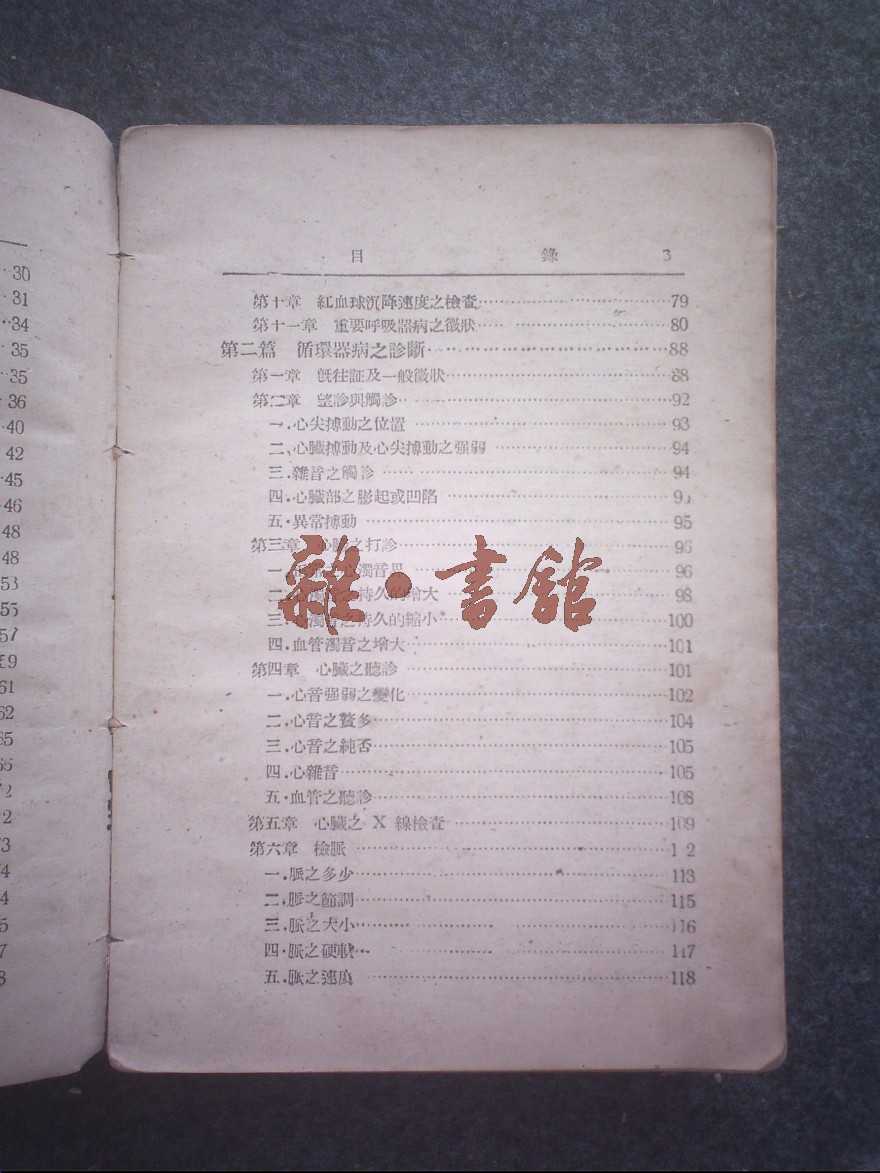 30
31
34
35
35
36
40
42
45
46
48
48
53
55
57
59
61
62
65
目 錄 3
第十章 紅血球沉降速度之檢查 79
第十一章 重要呼吸器病之徵狀 80
第二篇 循環器病之診斷 88
第一章 旣往証及一般徵狀 88
第二章 望診與觸診 92
一.心尖搏動之位置 93
二.心臟搏動及心尖搏動之强弱 94
三.雜音之觸診 94
四.心臟部之膨起或凹陷 9
五.異常搏動 95
第三章 心臟之打診 96
一 濁音界 96
二 之持久的增大 98
三.心濁音之持久的縮小 100
四.血管濁音之增大 101
第四章 心臟之聽診 101
一.心音强弱之變化 102
二.心音之贅多 104
三.心音之純否 105
四.心雜音 105
五.血管之聽診 108
第五章 心臟之 X 線檢查 109
第六章 檢脈 1 2
一.脈之多少 113
二.脈之節調 115
三.脈之大小 116
四.脈之硬軟 117
五.脈之速度 118
雜·書館